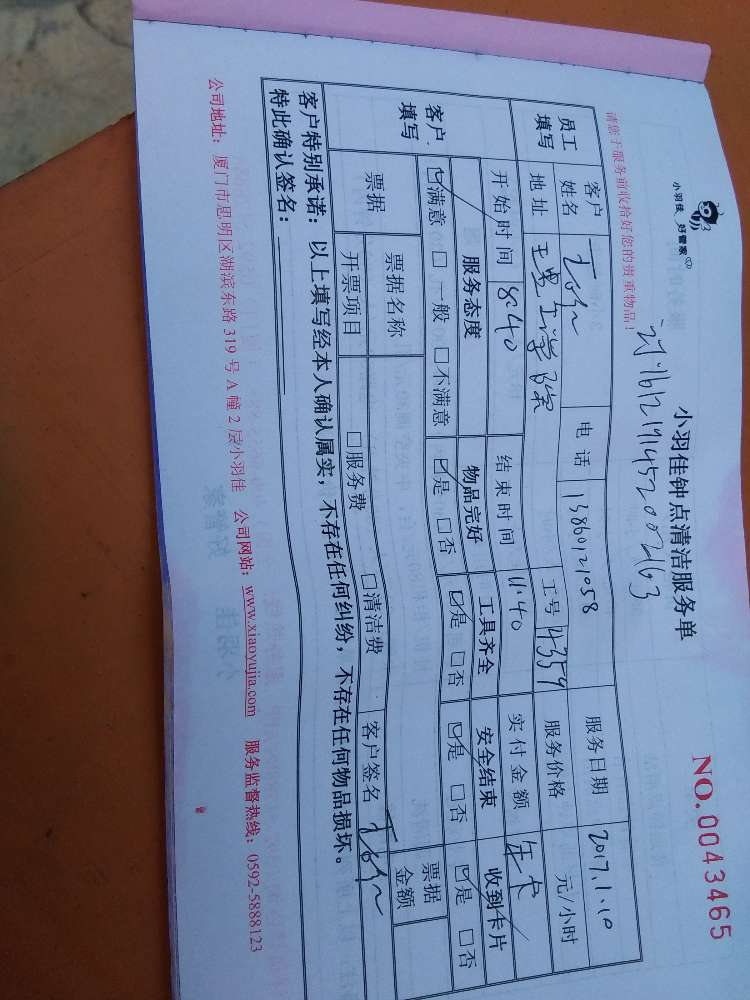 小羽佳 好管家
小羽佳钟点清洁服务单
NO.0043465
请您于服务前收拾好您的贵重物品!
员工填写
客户姓名
电话 13860121058
服务日期 2017.1.10
地址
工号 4359
服务价格 元/小时
开始时间 8:40
结束时间 11:40
实付金额 年卡
客户填写
服务态度 物品完好 工具齐全 安全结束 收到卡片
☑满意 □一般 □不满意 ☑是 □否 ☑是 □否 ☑是 □否 ☑是 □否
票据 票据名称 客户签名 票据金额
开票项目 □服务费 □清洁费
客户特别承诺:以上填写经本人确认属实,不存在任何纠纷,不存在任何物品损坏。
特此确认签名:
公司地址:厦门市思明区湖滨东路 319 号 A 幢 2 层小羽佳 公司网站:www.xiaoyujia.com 服务监督热线:0592-5888123